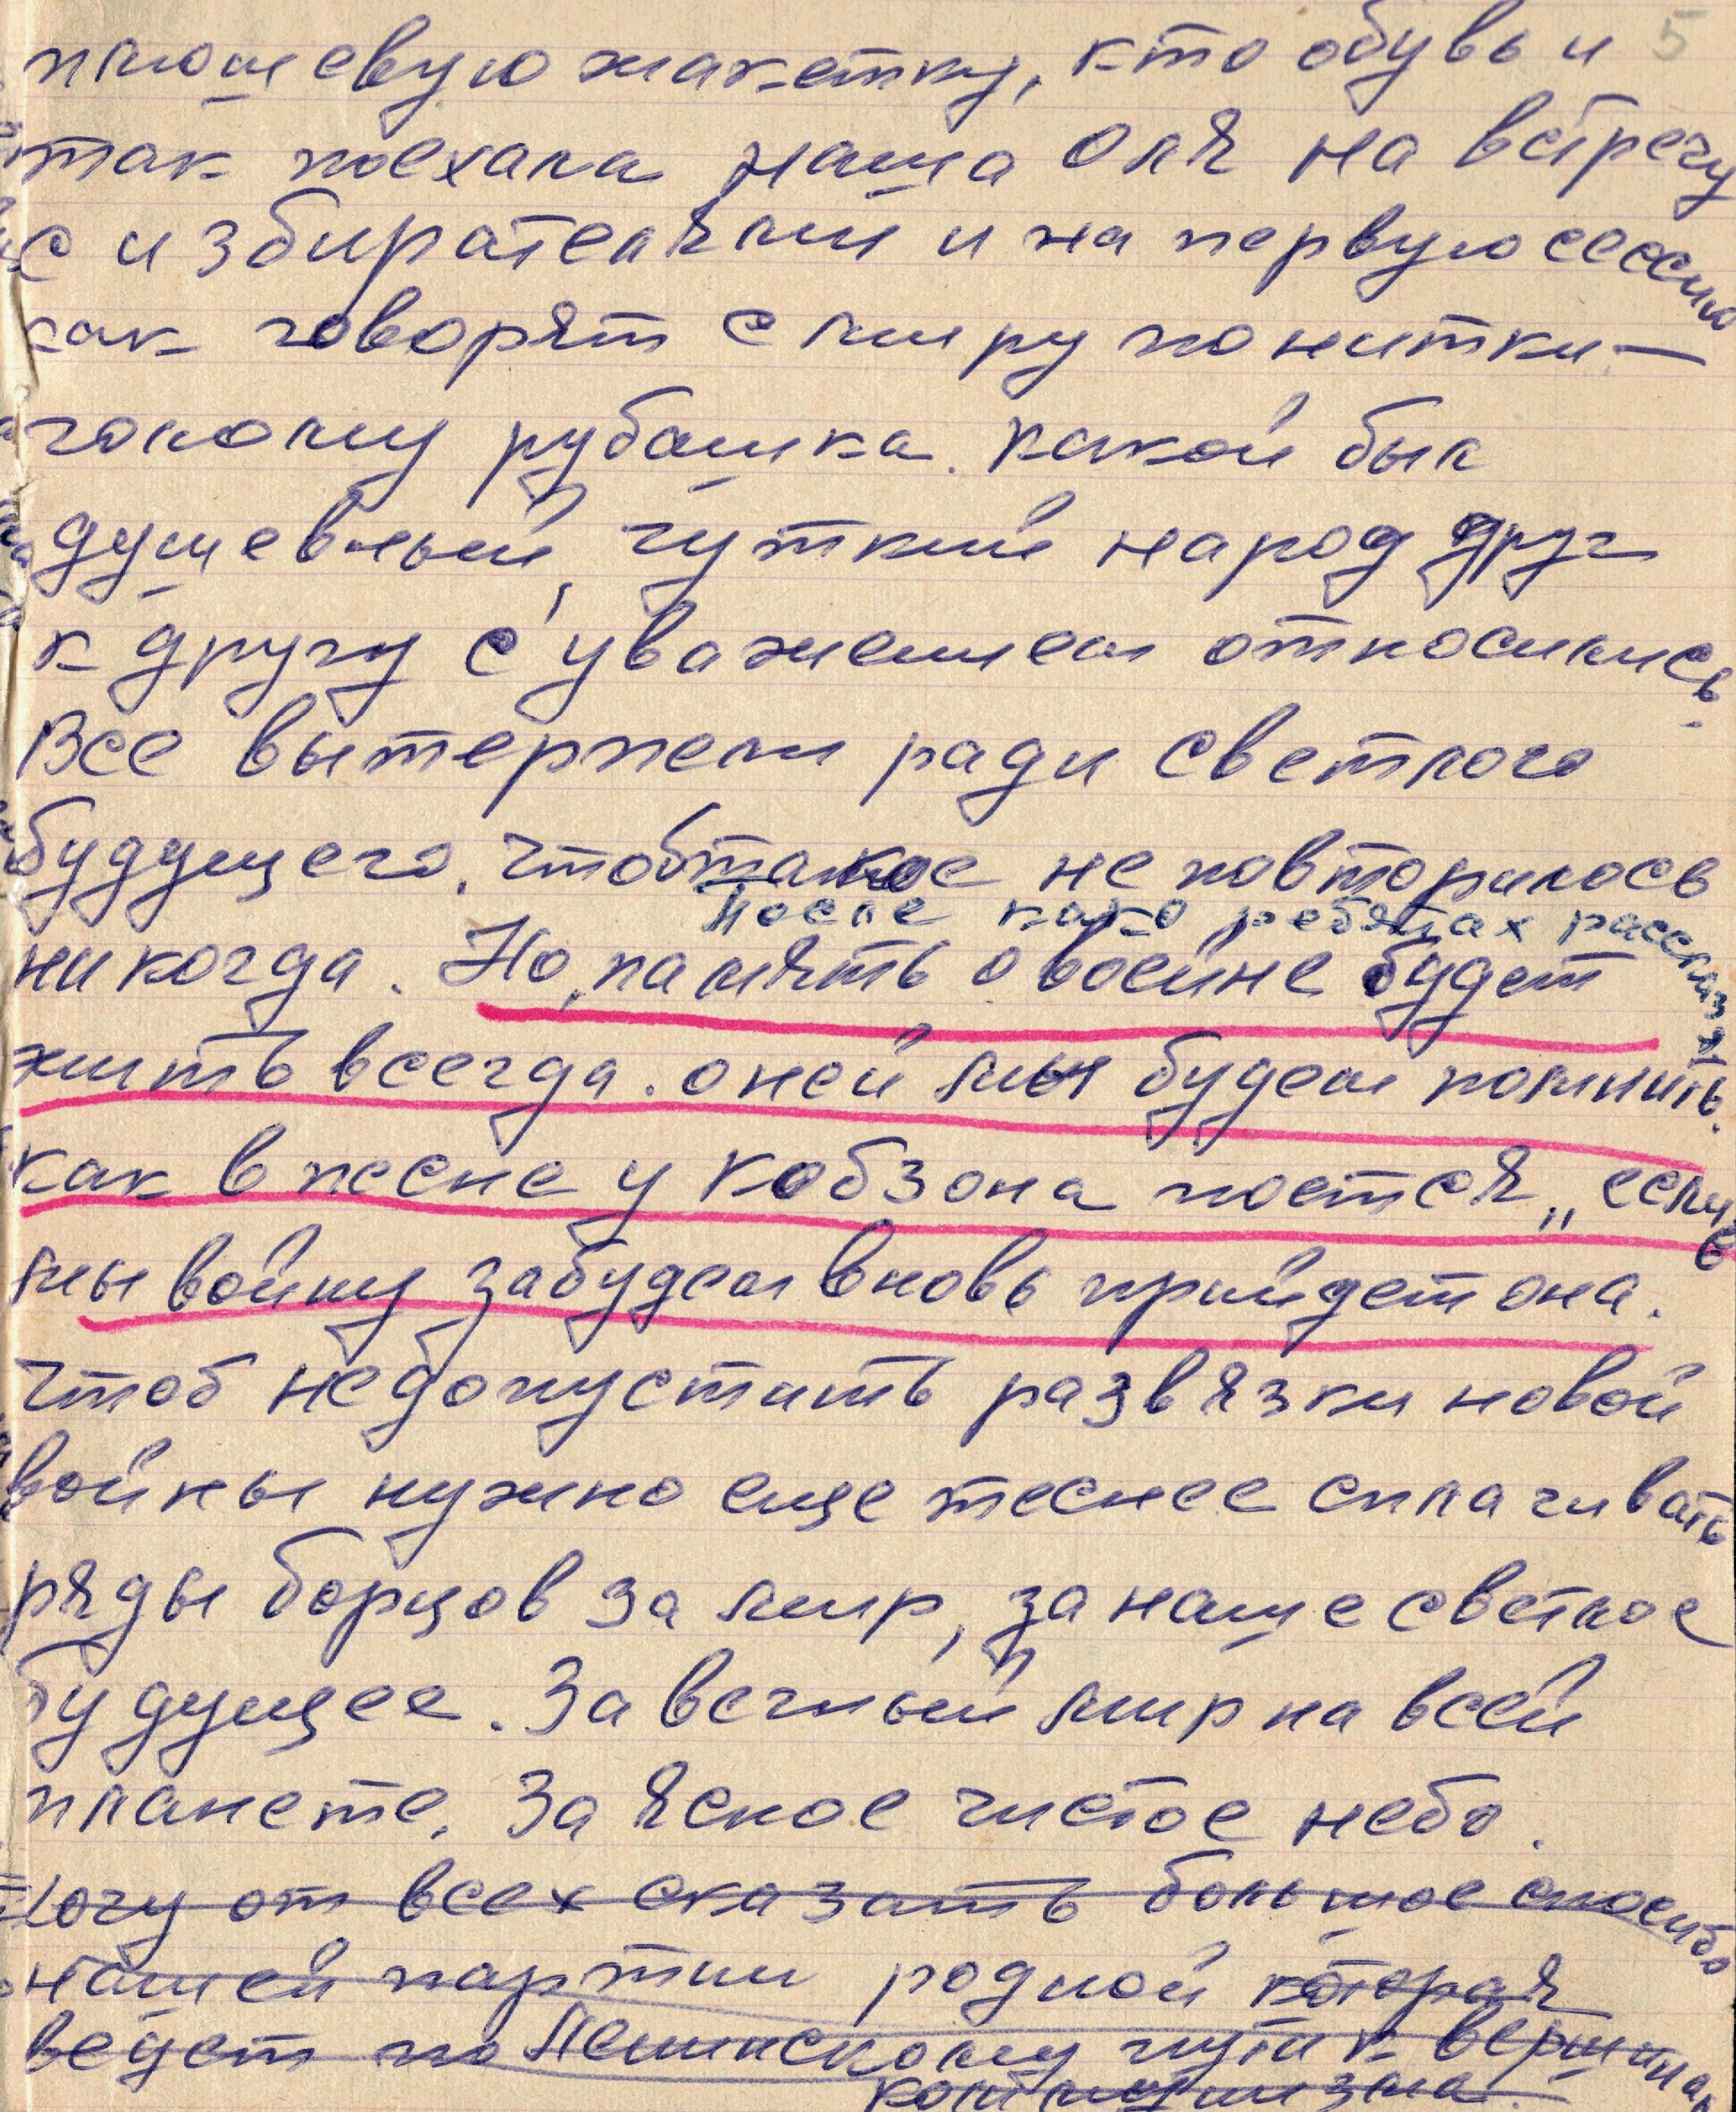 5
плюшевую жакетку, кто обувь и
так поехала наша Оля на встречу
с избирателями и на первую сессию
как говорят с миру по нитки —
голому рубашка. Какой был
душевный, чуткий народ друг
к другу с уважением относились.
Все вытерпели ради светлого
будущего. Чтоб такое не повторилось
после како ребятах рассказ
никогда. Но, память о воейне будет
жить всегда. о ней мы будем помнить.
как в песне у Кобзона поется „если
мы войну забудем вновь прийдет она.
Чтоб недопустить развязки новой
войны нужно еще теснее сплачивать
ряды борцов за мир, за наше светлое
будущее. За вечный мир на всей
планете. За ясное чистое небо.
Хочу от всех сказать большое спасибо
нашей партии родной которая
ведет по Ленинскому пути к вершинам
коммунизма.